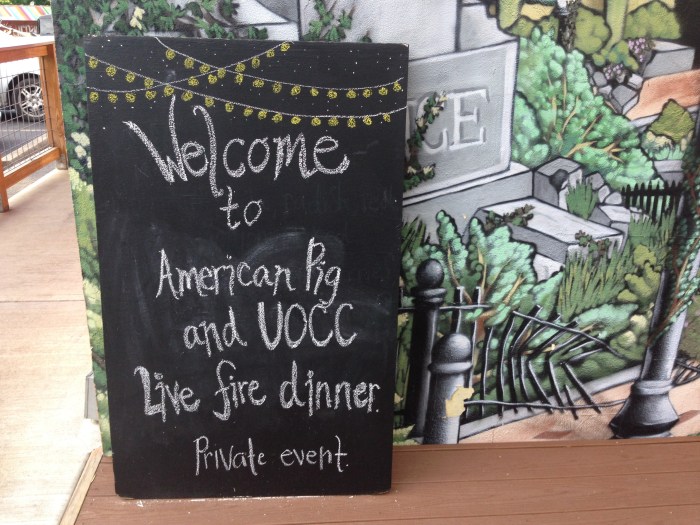 Welcome
to
American Pig
and UOCC
Live fire dinner.
Private event.